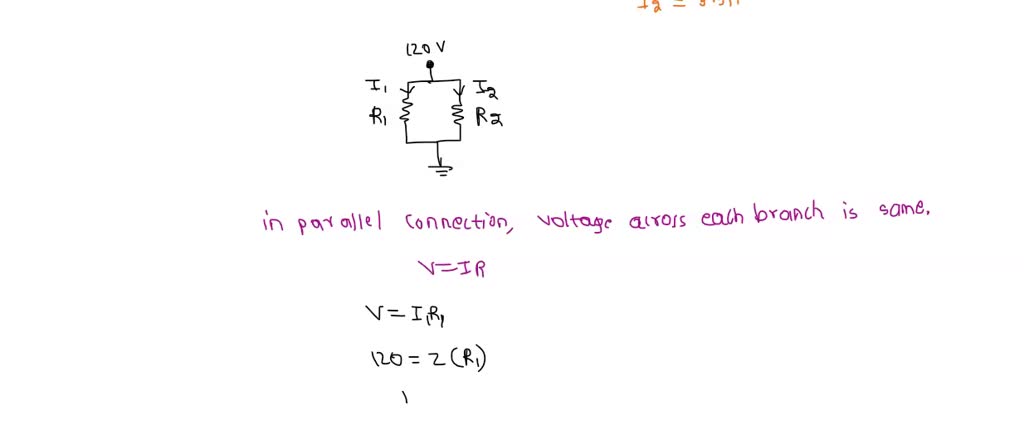 I2 =
120 V
I1 I2
R1 R2
in parallel connection, voltage across each branch is same.
V=IR
V=I1R1
120=2(R1)